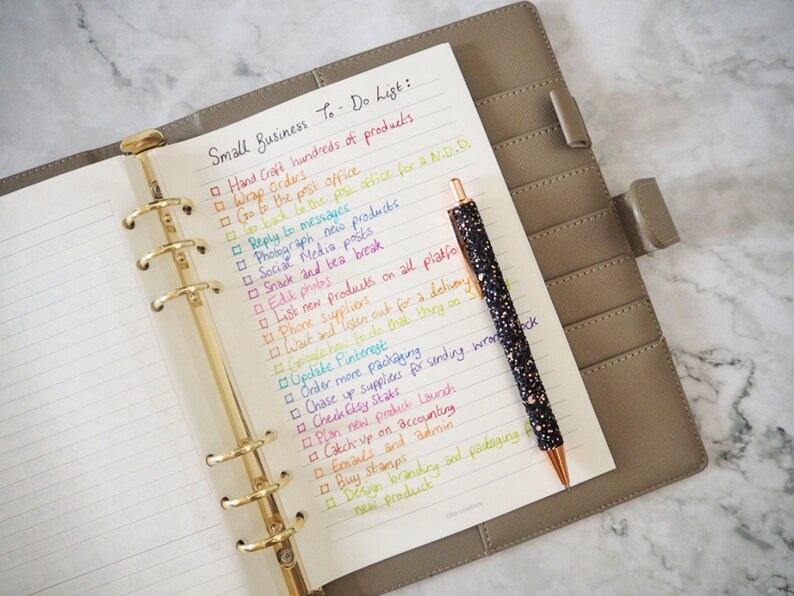 Small Business To-Do List:
Hand Craft hundreds of products
Wrap Orders
Go to the post office
Go back to the post office for a N.D.D.
Reply to messages
Photograph new products
Social Media posts
Snack and tea break
Edit photos
List new products on all platfo
Phone suppliers
Wait and listen out for a delivery
Google how to do that thing on
Update Pinterest
Order more packaging
Chase up suppliers for sending wrong
Check Etsy Stats
Plan new product launch
Catch-up on accounting
Emails and admin
Buy stamps
Design branding and packaging f
new product